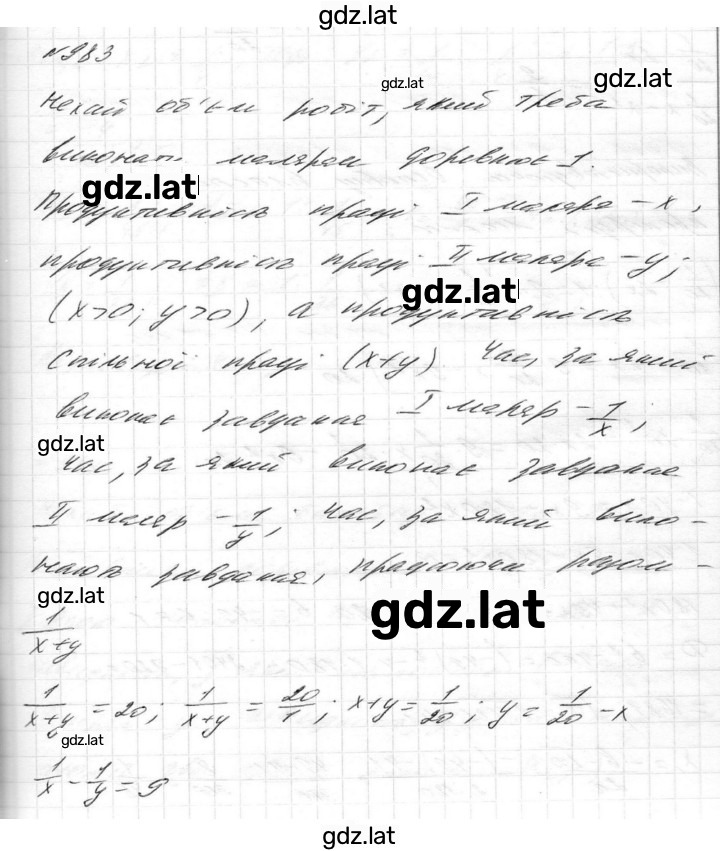 gdz.lat
№983
gdz.lat
gdz.lat
Нехай об'єм робіт, який треба
виконати малярам дорівнює 1.
gdz.lat
Продуктивність праці І маляра – x,
продуктивність праці ІІ маляра – y;
gdz.lat
(x>0; y>0), а продуктивність
спільної праці (x+y). Час, за який
виконає завдання І маляр – 1/x;
gdz.lat
Час, за який виконає завдання
ІІ маляр – 1/y; час, за який вико-
нають завдання, працюючи разом –
gdz.lat
gdz.lat
1/(x+y)
1/(x+y) = 20; 1/(x+y) = 20/1; x+y = 1/20; y = 1/20 – x
gdz.lat
1/x – 1/y = 9
gdz.lat